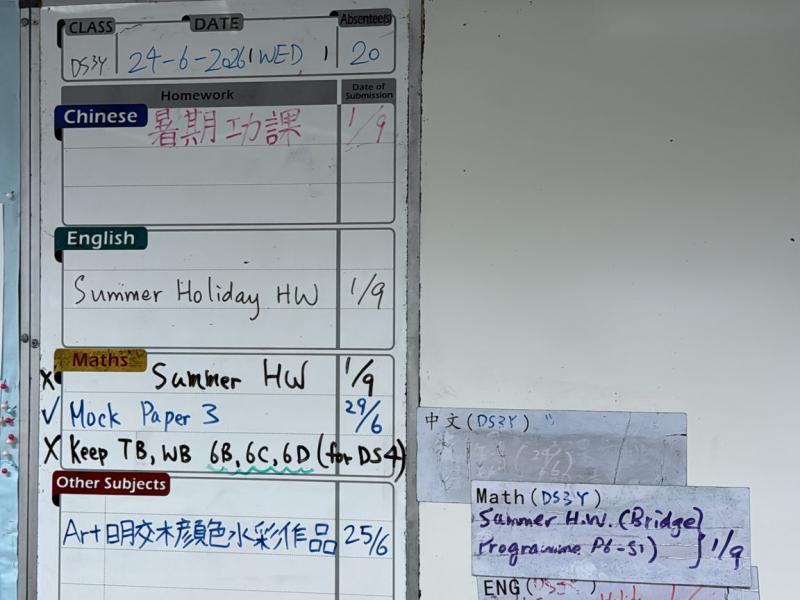 CLASS DATE Absentee(s)
DS3Y 24-6-2026 WED 20
Homework Date of Submission
Chinese 暑期功課 1/9
English
Summer Holiday HW 1/9
Maths
X Summer HW 1/9
✓ Mock Paper 3 29/6
X Keep TB, WB 6B, 6C, 6D (for DS4)
Other Subjects
Art 明交木顏色水彩作品 25/6
中文(DS3Y)
Math(DS3Y)
Summer H.W. (Bridge
Programme P6-S1) 1/9
ENG(